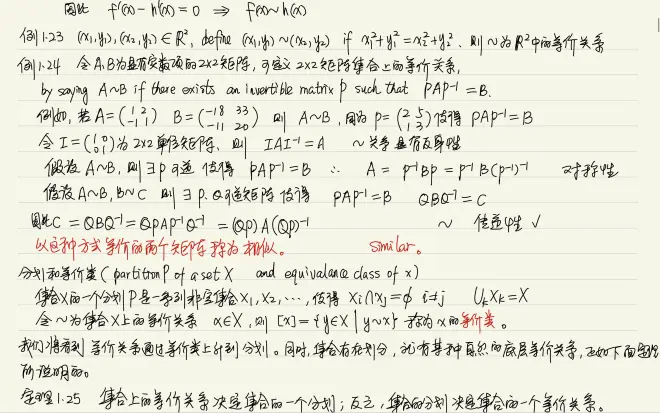 因此 f'(x)-h'(x)=0 ⇒ f(x)~h(x)
例1.23 (x₁,y₁),(x₂,y₂)∈R², define (x₁,y₁)~(x₂,y₂) if x₁²+y₁²=x₂²+y₂². 则~为R²中的等价关系
例1.24 令A,B为具有实数项的2x2矩阵,可定义2x2矩阵集合上的等价关系,
by saying A~B if there exists an invertible matrix P such that PAP⁻¹=B.
例如,若A=(1 2 -1 1) B=(-18 33 -11 20) 则 A~B,因为P=(2 5 1 3)使得 PAP⁻¹=B
令I=(1 0 0 1)为2x2单位矩阵,则 IAI⁻¹=A ~关系具有反身性
假设A~B,则∃P可逆 使得 PAP⁻¹=B ∴ A=P⁻¹BP=P⁻¹B(P⁻¹)⁻¹ 对称性
假设A~B,B~C 则∃P.Q可逆矩阵使得 PAP⁻¹=B QBQ⁻¹=C
因此C=QBQ⁻¹=QPAP⁻¹Q⁻¹=(QP)A(QP)⁻¹ ~ 传递性 ✓
以这种方式等价的两个矩阵称为相似。 Similar。
分划和等价类(partition P of a set X and equivalance class of x)
集合X的一个分划P是一系列非空集合X₁,X₂,⋯,使得 Xi∩Xj=∅ i≠j ∪ₖXₖ=X
令~为集合X上的等价关系 x∈X,则 [x]={y∈X|y~x} 称为x的等价类。
我们将看到 等价关系通过等价类上升到分划。同时,集合存在划分,就有某种自然的底层等价关系,正如下面定理
所说明的。
定理1.25 集合上的等价关系决定集合的一个分划;反之,集合的分划决定集合的一个等价关系。